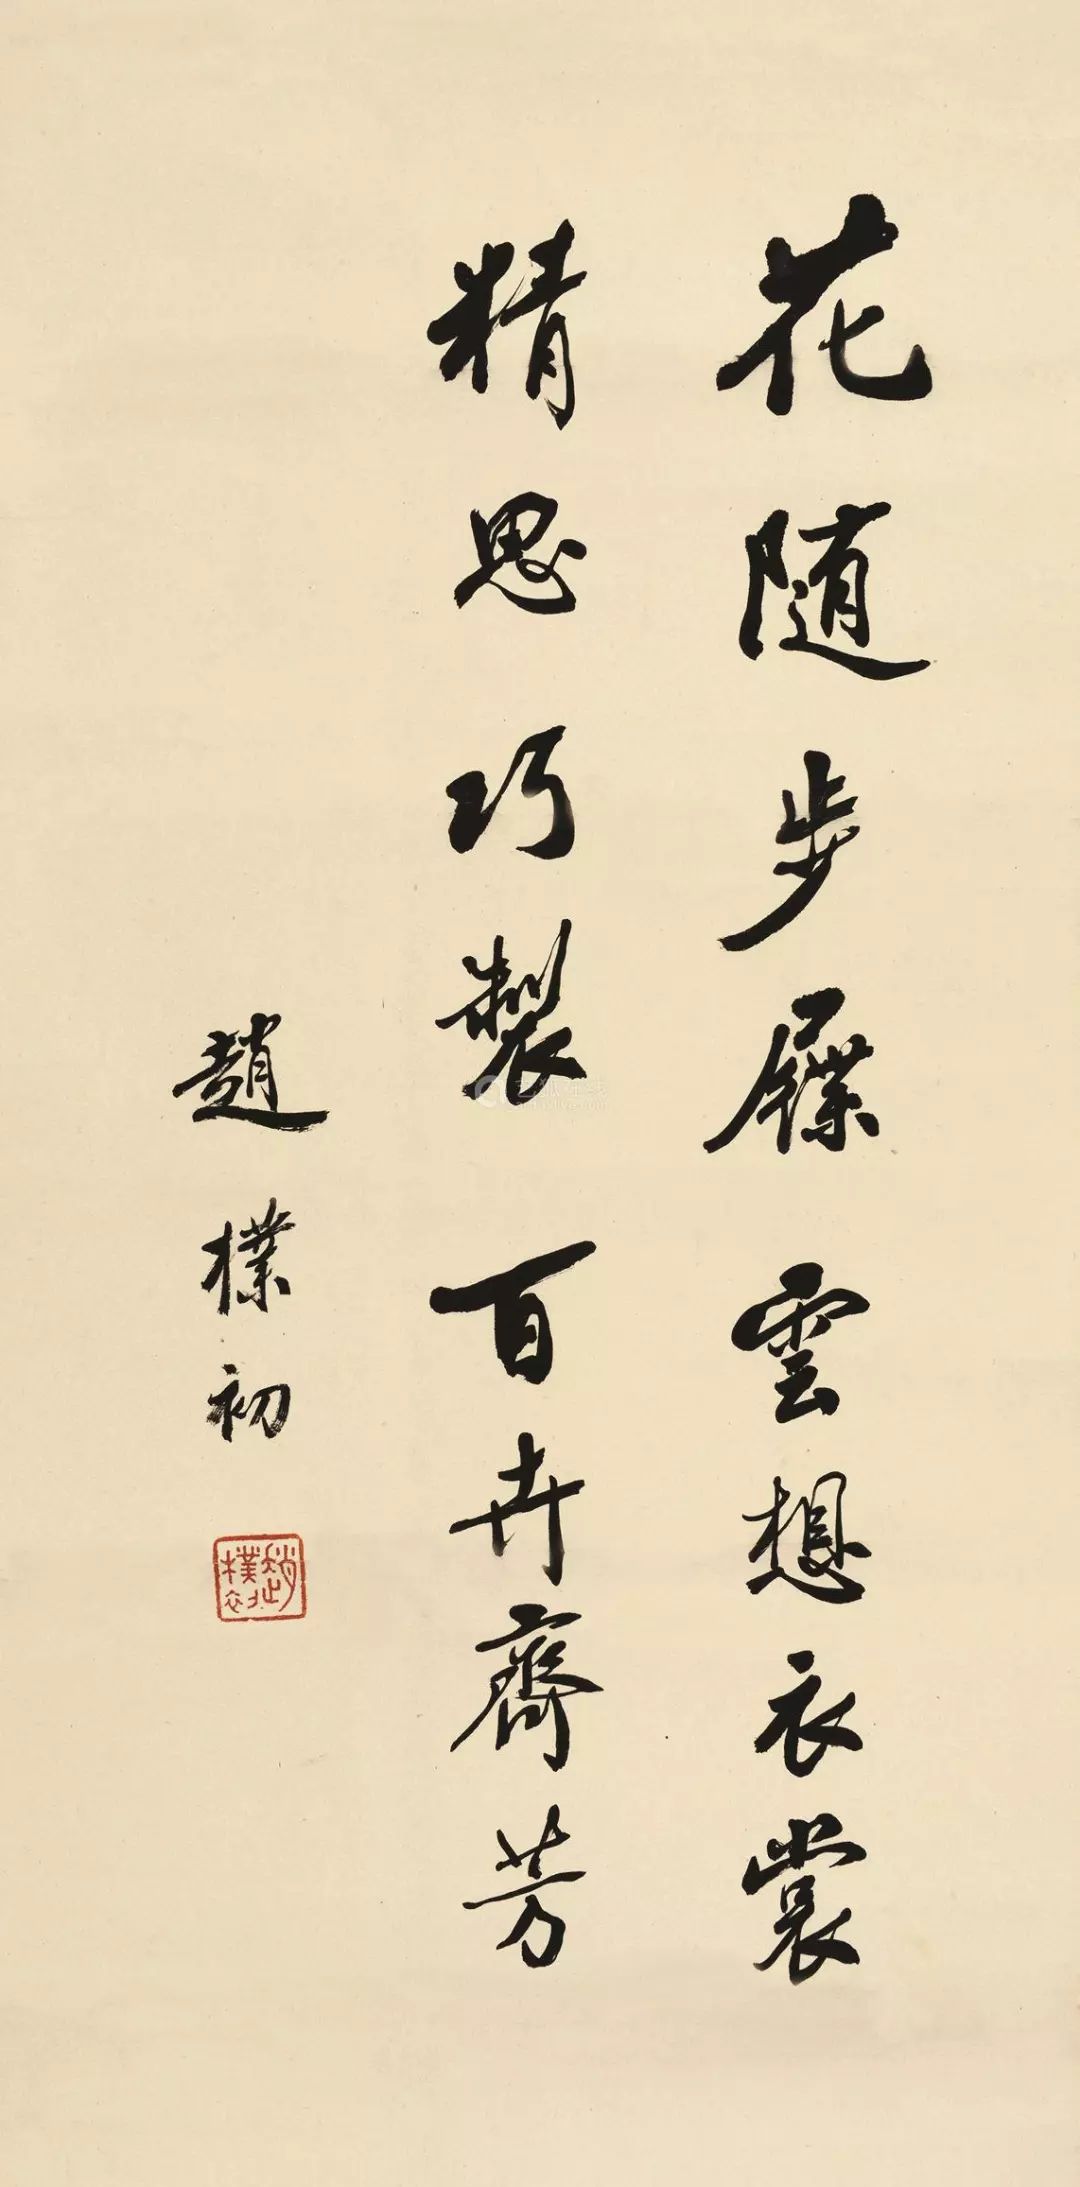 花随步屧雲想衣裳
精思巧製百卉齋芳
趙樸初
趙樸初